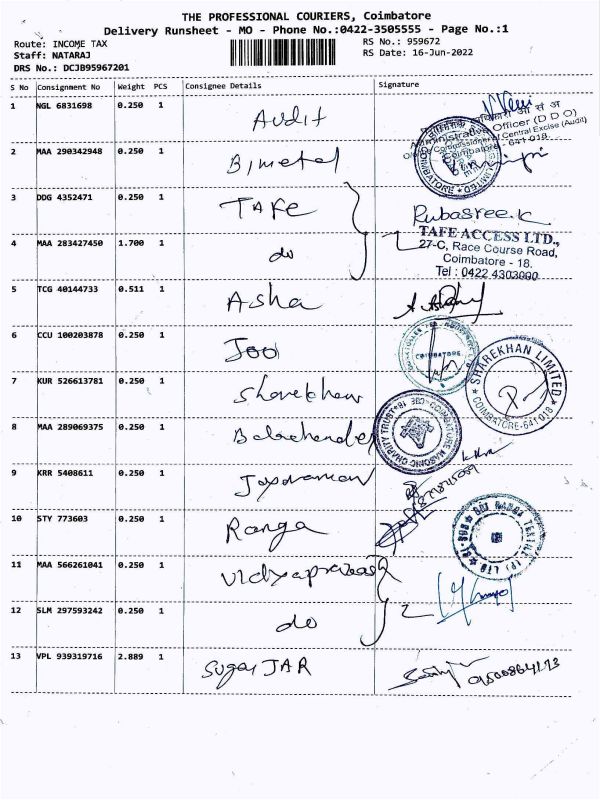 THE PROFESSIONAL COURIERS, Coimbatore
Delivery Runsheet - MO - Phone No.:0422-3505555 - Page No.:1
Route: INCOME TAX
RS No.: 959672
Staff: NATARAJ
RS Date: 16-Jun-2022
DRS No.: DCJB95967201
S No Consignment No Weight PCS Consignee Details Signature
1 NGL 6831698 0.250 1 Audit
Administrative Officer (D D O)
Central Excise (Audit)
Coimbatore - 641 018.
2 MAA 290342948 0.250 1 Bimetal
COIMBATORE LIMITED
3 DDG 4352471 0.250 1 TAFE Rubasree.K
TAFE ACCESS LTD.,
27-C, Race Course Road,
Coimbatore - 18.
Tel : 0422 4303000
4 MAA 283427450 1.700 1 do
5 TCG 40144733 0.511 1 Asha
6 CCU 100203878 0.250 1 Joo
COIMBATORE
7 KUR 526613781 0.250 1 Sharekhan
SHAREKHAN LIMITED
COIMBATORE-641 018
8 MAA 289069375 0.250 1
COIMBATORE MASONIC CHARITY TRUST CBE-18
9 KRR 5408611 0.250 1 Jayaraman
10 STY 773603 0.250 1 Ranga
SRI RANGA TEXTILE (P) LTD
11 MAA 566261041 0.250 1
12 SLM 297593242 0.250 1 do
13 VPL 939319716 2.889 1 Sugar JAR